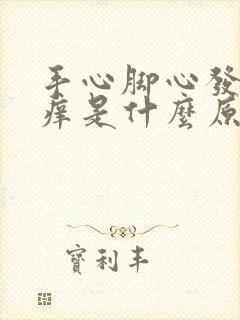 手心脚心發
痒是什麼原
寶利丰